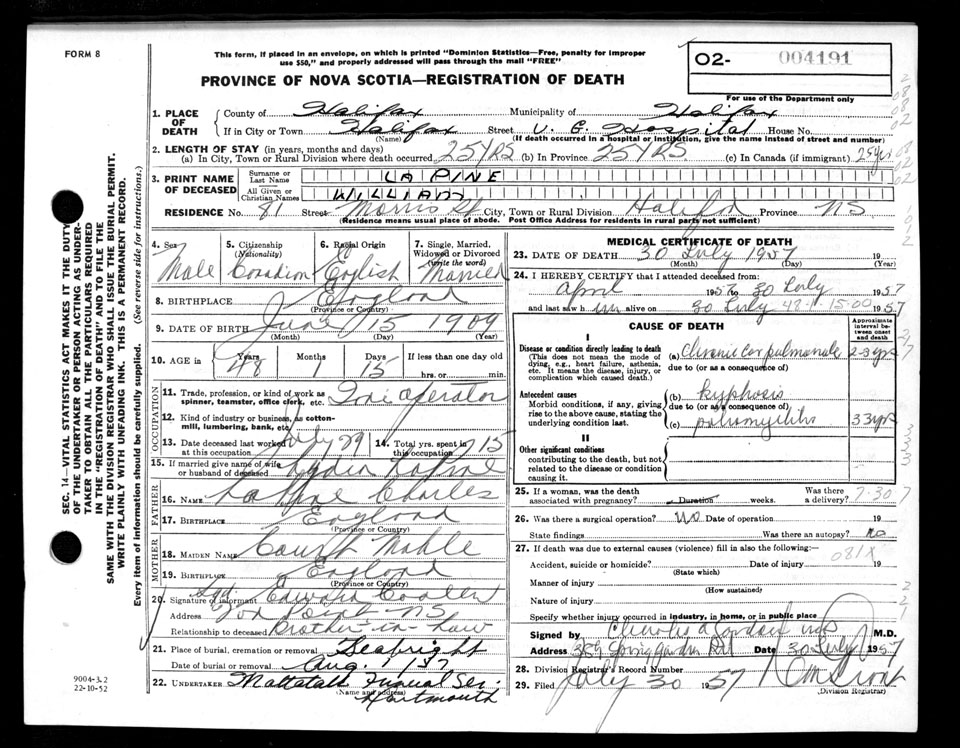 FORM 8
This form, if placed in an envelope, on which is printed "Dominion Statistics—Free, penalty for improper
use $50," and properly addressed will pass through the mail "FREE"
PROVINCE OF NOVA SCOTIA—REGISTRATION OF DEATH
O2- 004191
For use of the Department only
1. PLACE OF DEATH
County of Halifax Municipality of Halifax
If in City or Town Halifax Street V. G. Hospital House No.
(Name) (If death occurred in a hospital or institution, give the name instead of street and number)
2. LENGTH OF STAY (in years, months and days)
(a) In City, Town or Rural Division where death occurred 25 YRS (b) In Province 25 YRS (c) In Canada (if immigrant) 25 yrs
3. PRINT NAME OF DECEASED
Surname or Last Name LA PINE
All Given or Christian Names WILLIAM
RESIDENCE No. 81 Street Morris St City, Town or Rural Division Halifax Province NS
(Residence means usual place of abode. Post Office Address for residents in rural parts not sufficient)
4. Sex Male
5. Citizenship (Nationality) Canadian
6. Racial Origin English
7. Single, Married, Widowed or Divorced (write the word) Married
8. BIRTHPLACE England
(Province or Country)
9. DATE OF BIRTH June 15 1909
(Month) (Day) (Year)
10. AGE in Years 48 Months 1 Days 15 If less than one day old hrs. or min.
OCCUPATION
11. Trade, profession, or kind of work as spinner, teamster, office clerk, etc. Taxi operator
12. Kind of industry or business, as cotton-mill, lumbering, bank, etc.
13. Date deceased last worked at this occupation July 29 14. Total yrs. spent in 15
15. If married give name of wife or husband of deceased Lydia LaPine
FATHER
16. NAME LaPine Charles
17. BIRTHPLACE England
(Province or Country)
MOTHER
18. MAIDEN NAME Mable
19. BIRTHPLACE England
(Province or Country)
20. Signature of informant Sgd. Edward
Address Fox Point NS
Relationship to deceased Brother-in-law
21. Place of burial, cremation or removal Seabright
Date of burial or removal Aug. 1 57
22. UNDERTAKER Mattatall Funeral Ser.
(Name and address) Dartmouth
9004-3.2
22-10-52
MEDICAL CERTIFICATE OF DEATH
23. DATE OF DEATH 30 July 1957 19
(Month) (Day) (Year)
24. I HEREBY CERTIFY that I attended deceased from:
April 1957 to 30 July 1957
and last saw him alive on 30 July 1957
CAUSE OF DEATH
Approximate interval between onset and death
Disease or condition directly leading to death
(This does not mean the mode of dying, e.g., heart failure, asthenia, etc. It means the disease, injury, or complication which caused death.)
(a) Chronic cor pulmonale 2-3 yrs
due to (or as a consequence of)
Antecedent causes
Morbid conditions, if any, giving rise to the above cause, stating the underlying condition last.
(b) kyphosis
due to (or as a consequence of)
(c) poliomyelitis 33 yrs
II
Other significant conditions
contributing to the death, but not related to the disease or condition causing it.
25. If a woman, was the death associated with pregnancy? Duration weeks. Was there a delivery?
26. Was there a surgical operation? No Date of operation 19
State findings Was there an autopsy? no
27. If death was due to external causes (violence) fill in also the following:—
Accident, suicide or homicide? Date of injury 19
(State which)
081X
Manner of injury
(How sustained)
Nature of injury
Specify whether injury occurred in industry, in home, or in public place
Signed by Charles M.D.
Address 389 Spring Garden Rd Date 30 July 1957
28. Division Registrar's Record Number
29. Filed July 30 1957
(Division Registrar)
SEC. 14—VITAL STATISTICS ACT MAKES IT THE DUTY
OF THE UNDERTAKER OR PERSON ACTING AS UNDER-
TAKER TO OBTAIN ALL THE PARTICULARS REQUIRED
IN THE "REGISTRATION OF DEATH" AND TO FILE THE
SAME WITH THE DIVISION REGISTRAR WHO SHALL ISSUE THE BURIAL PERMIT.
WRITE PLAINLY WITH UNFADING INK. THIS IS A PERMANENT RECORD.
Every item of information should be carefully supplied. (See reverse side for instructions.)